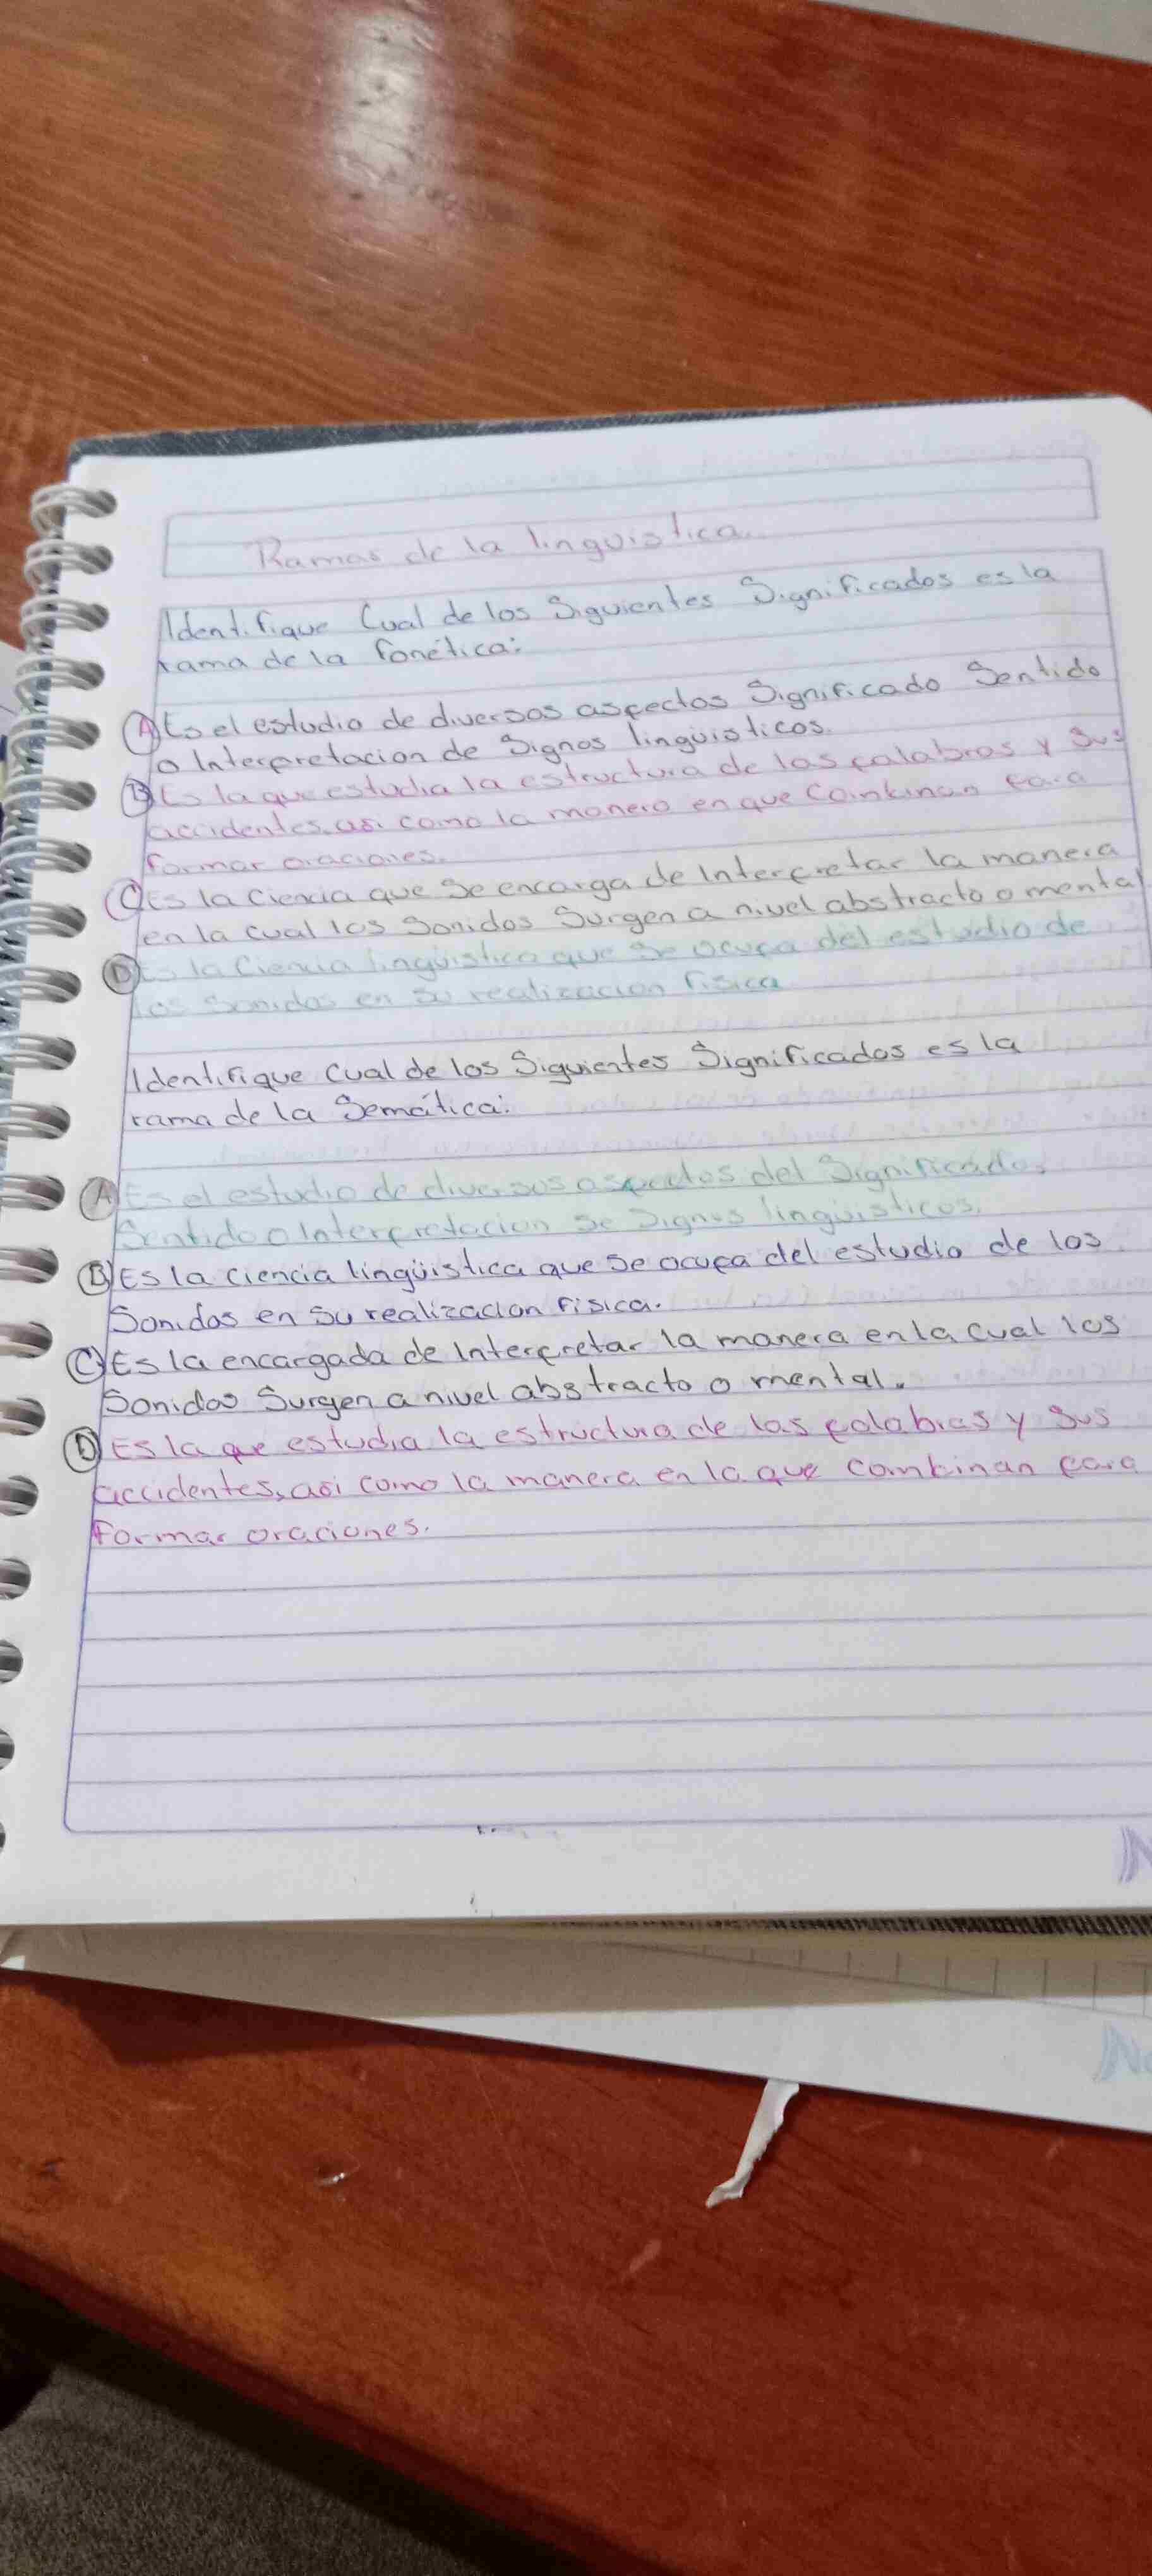 Ramas de la linguistica.
Identifique Cual de los Siguientes Significados es la
rama de la fonética:
A) Es el estudio de diversos aspectos Significado Sentido
o Interpretacion de Signos linguisticos.
B) Es la que estudia la estructura de las palabras y sus
accidentes, asi como la manera en que Coinkinan para
formar oraciones.
C) Es la Ciencia que se encarga de Interpretar la manera
en la cual los Sonidos Surgen a nivel abstracto o mental
D) Es la Ciencia linguistica que se ocupa del estudio de
los sonidos en su realizacion Fisica
Identifique Cual de los Siguientes Significados es la
rama de la Semática:
A) Es el estudio de diversos aspectos del Significado,
Sentido o Interpretacion se Signos linguisticos.
B) Es la ciencia lingüistica que se ocupa del estudio de los
Sonidos en Su realizacion Fisica.
C) Es la encargada de Interpretar la manera en la cual los
Sonidos Surgen a nivel abstracto o mental.
D) Es la que estudia la estructura de las palabras y sus
accidentes, asi como la manera en la que combinan para
Formar oraciones.